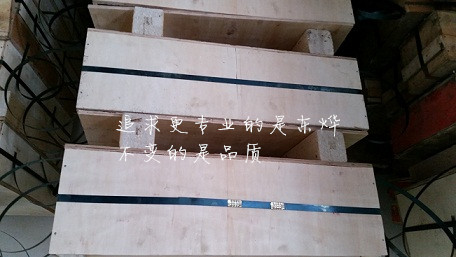 追求更专业的是东烨
不变的是品质